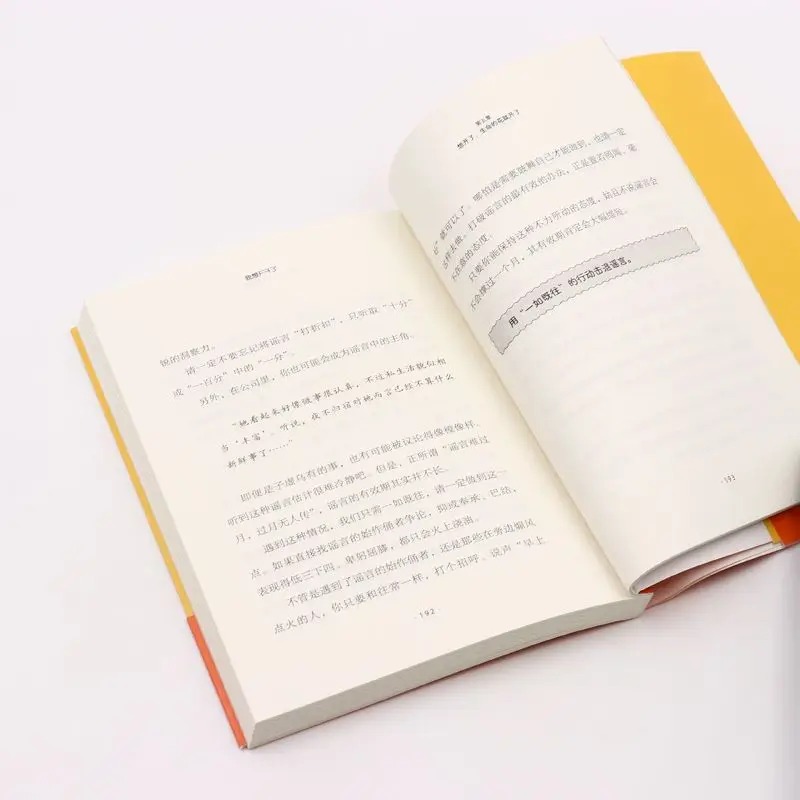 我想开了
锐的洞察力。
请一定不要忘记将谣言“打折扣”,只听取“十分”
或“一百分”中的“一分”。
另外,在公司里,你也可能会成为谣言中的主角。
“她看起来好像做事很认真,不过私生活貌似相
当‘丰富’。听说,夜不归宿对她而言已经不算什么
新鲜事了……”
即便是子虚乌有的事,也有可能被议论得像模像样。
听到这种谣言估计很难冷静吧。但是,正所谓“谣言难过
月,过月无人传”,谣言的有效期其实并不长。
遇到这种情况,我们只需一如既往,请一定做到这一
点。如果直接找谣言的始作俑者争论,抑或奉承、巴结,
表现得低三下四、卑躬屈膝,都只会火上浇油。
不管是遇到了谣言的始作俑者,还是那些在旁边煽风
点火的人,你只要和往常一样,打个招呼,说声“早上
·192·
第五章
想开了,生命的花就开了
好”就可以了。哪怕是需要鼓舞自己才能做到,也请一定
这样去做。打破谣言的最有效的办法,正是置若罔闻、毫
不在意的态度。
只要你能保持这种不为所动的态度,姑且不说谣言会
不会撑过一个月,其有效期肯定会大幅缩短。
用“一如既往”的行动击退谣言。
·193·